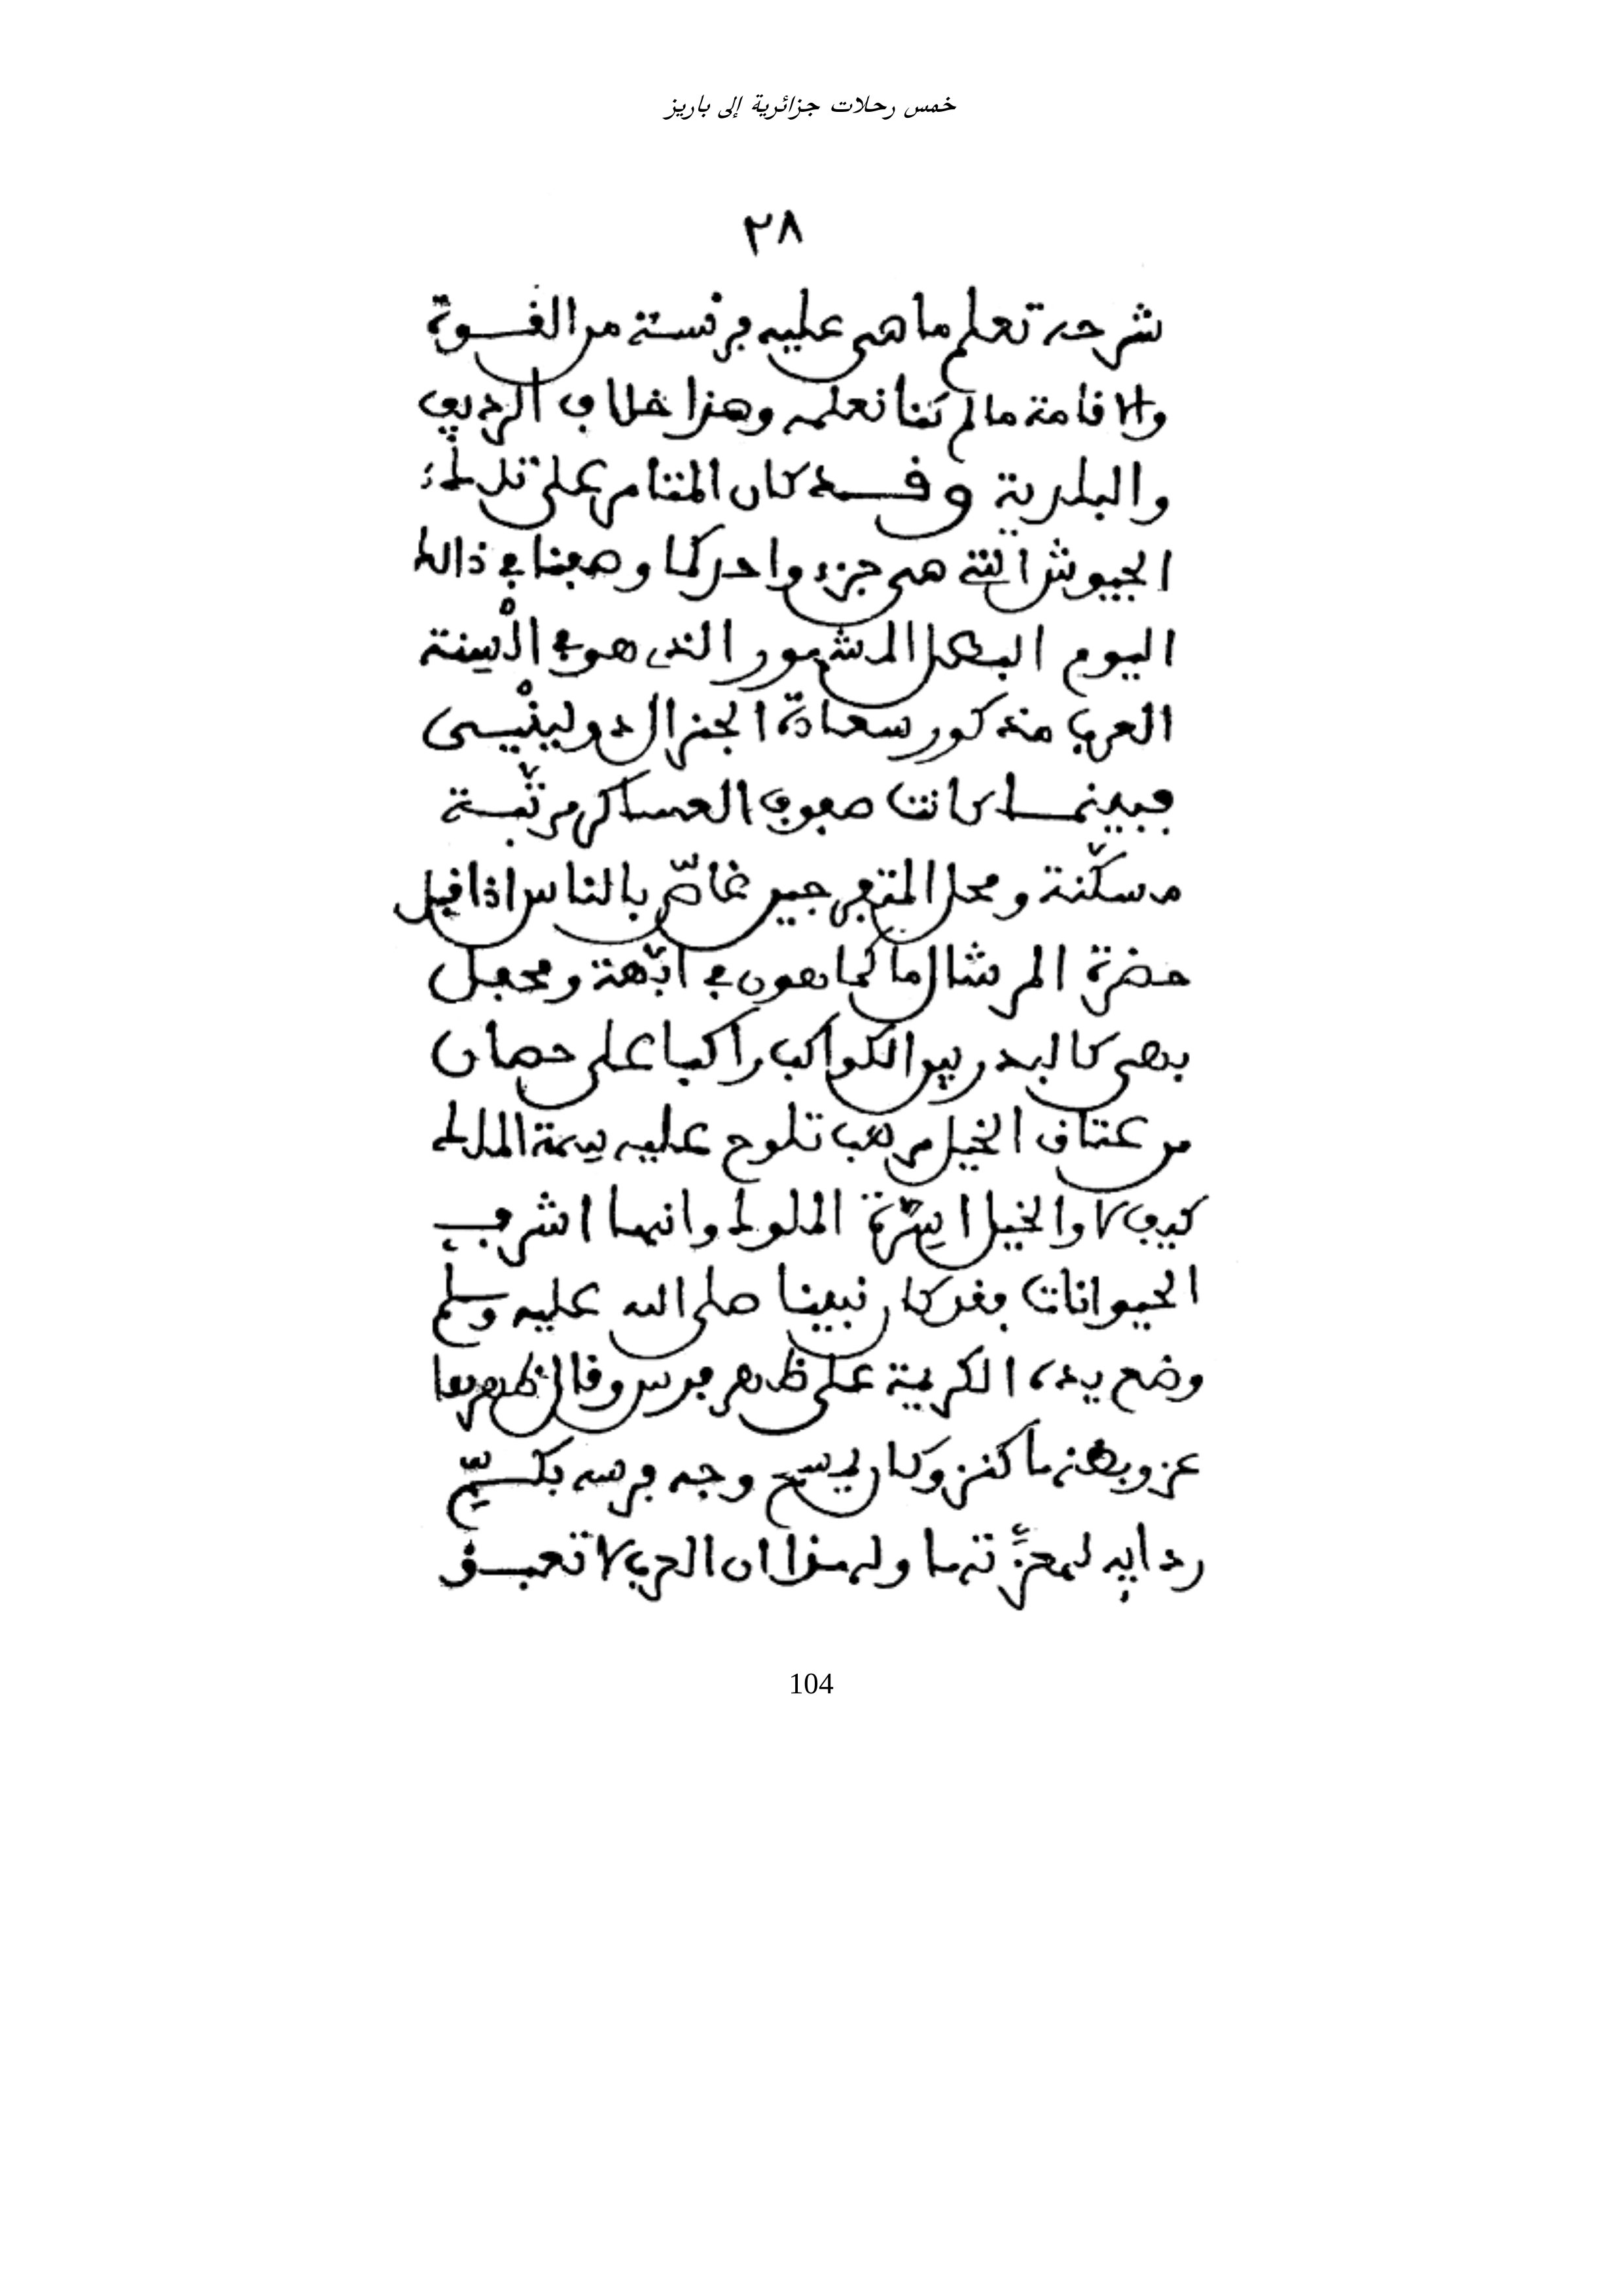 خمس رحلات جزائرية إلى باريز
٢٨
شرحه تعلم ما هي عليه فرنسة من القـــوة
والاقامة ما لم كنا نعلمه وهذا خلاف الرديف
والبلدية وقـــد كان المتأمر على تلك
الجيوش التي هي جزء واحد كما وصفنا في ذالك
اليوم البطل المشهور الذي هو في السنة
العرب مذكور سعادة الجنرال دو ليني
فبينمـــا كانت صفوف العساكر مرتبـــة
مسكّنة ومحل المتفرجين غاصّ بالناس اذا قبل
حضرة المرشال ماكماهون في ابّهة ومحفل
بهي كالبدر بين الكواكب راكبا على حصان
من عتاق الخيل مرهب تلوح عليه سمة الملك
كيف لا والخيل اسرّة الملوك وانها اشرف
الحيوانات فقد كان نبينا صلى الله عليه وسلم
وضع يده الكريمة على ظهر فرس وقال ظهرها
عز وبطنها كنز وكان يمسح وجه فرسه بكـــمّ
ردايه لمعزّتها ولهذا ان العرب لا تعبـــق
104